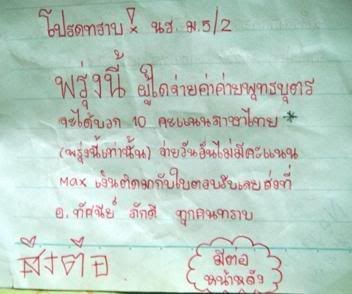 โปรดทราบ! นร. ม.5/2
พรุ่งนี้ ผู้ใดจ่ายค่าค่ายพุทธบุตร
จะได้บวก 10 คะแนนภาษาไทย *
(พรุ่งนี้เท่านั้น) จ่ายวันอื่นไม่มีคะแนน
Max เงินติดมากับใบตอบรับเลย ส่งที่
อ. ทัศนีย์ ภักดี ทุกคนทราบ
มีต่อ
หน้าหลัง